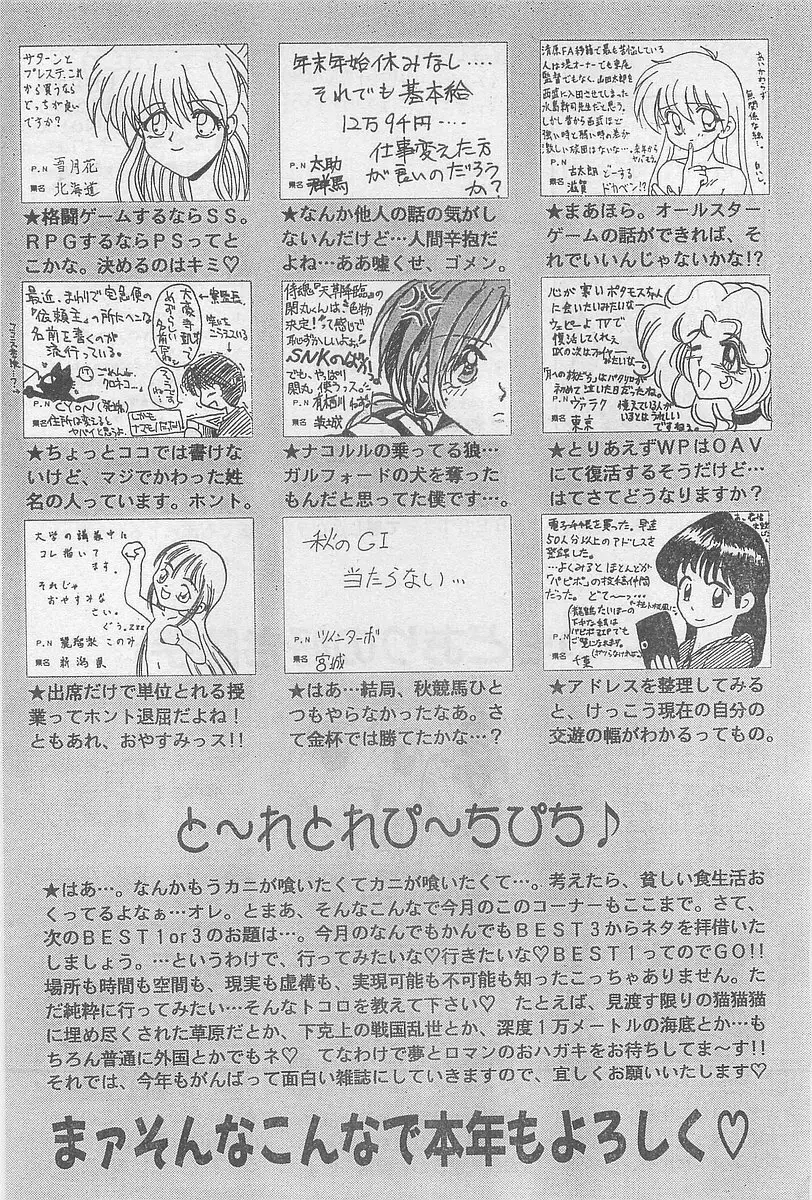 サターンと
プレステ、これ
から買うなら
どっちが良い
ですか?
P.N 雪月花
県名 北海道
★格闘ゲームするならSS。
RPGするならPSってと
こかな。決めるのはキミ♡
年末年始休みなし‥‥
それでも基本給
12万94円‥‥
仕事変えた方
が良いのだろう
か?
P.N 太助
県名 群馬
★なんか他人の話の気がし
ないんだけど…人間辛抱だ
よね…ああ嘘くせ、ゴメン。
清原FA移籍で最も苦悩している
人は堤オーナーでも東尾
監督でもなく、山田太郎を
西武に入団させてしまった
水島新司先生だと思う。
しかし昔から西武ほど
強い時と弱い時の差が
激しい球団はないな…
P.N 古太郎
県名 滋賀
どーする
ドカベン!?
あいかわらず
無関係な絵…
★まあほら。オールスター
ゲームの話ができれば、そ
れでいいんじゃないかな!?
最近、まわりで宅急便の
『依頼主』の所にヘンな
名前を書くのが
流行っている。
ごめんね、
クロネコ…
P.N CYON
県名 住所は変えると
ヤバイと思うよ。
★ちょっとココでは書けな
いけど、マジでかわった姓
名の人っています。ホント。
侍魂『天草降臨』の
閑丸くんは、色物
決定!って感じで
恥ずかしいよぉ!
SNKのばか
でも、やっぱり
閑丸使うっス。
P.N 有栖川
県名 茨城
★ナコルルの乗ってる狼…
ガルフォードの犬を奪った
もんだと思ってた僕です…。
心が寒いポタモスちゃん
に会いたいみたいな
ウェピーよTVで
復活してくれぇ
P.N ヴァラク
県名 東京
★とりあえずWPはOAV
にて復活するそうだけど…
はてさてどうなりますか?
大学の講義中に
コレ描いて
ます。
それじゃ
おやすみな
さい。
ぐぅ。Zzz
P.N 麗瑠梨 このみ
県名 新潟県
★出席だけで単位とれる授
業ってホント退屈だよね!
ともあれ、おやすみっス!!
秋のGI
当たらない…
P.N ツインターボ
県名 宮城
★はあ…結局、秋競馬ひと
つもやらなかったなあ。さ
て金杯では勝てたかな…?
電子手帳を買った。早速
50人分以上のアドレスを
登録した。
…よくみるとほとんどが
「パピポ」の投稿仲間
だった。どて〜っ…
県名 千葉
★アドレスを整理してみる
と、けっこう現在の自分の
交遊の幅がわかるってもの。
と〜れとれぴ〜ちぴち♪
★はあ…。なんかもうカニが喰いたくてカニが喰いたくて…。考えたら、貧しい食生活お
くってるよなぁ…オレ。とまあ、そんなこんなで今月のこのコーナーもここまで。さて、
次のBEST1or3のお題は…。今月のなんでもかんでもBEST3からネタを拝借いた
しましょう。…というわけで、行ってみたいな♡行きたいな♡BEST1ってのでGO!!
場所も時間も空間も、現実も虚構も、実現可能も不可能も知ったこっちゃありません。た
だ純粋に行ってみたい…そんなトコロを教えて下さい♡ たとえば、見渡す限りの猫猫猫
に埋め尽くされた草原だとか、下克上の戦国乱世とか、深度1万メートルの海底とか…も
ちろん普通に外国とかでもネ♡ てなわけで夢とロマンのおハガキをお待ちしてま〜す!!
それでは、今年もがんばって面白い雑誌にしていきますので、宜しくお願いいたします♡
まァそんなこんなで本年もよろしく♡